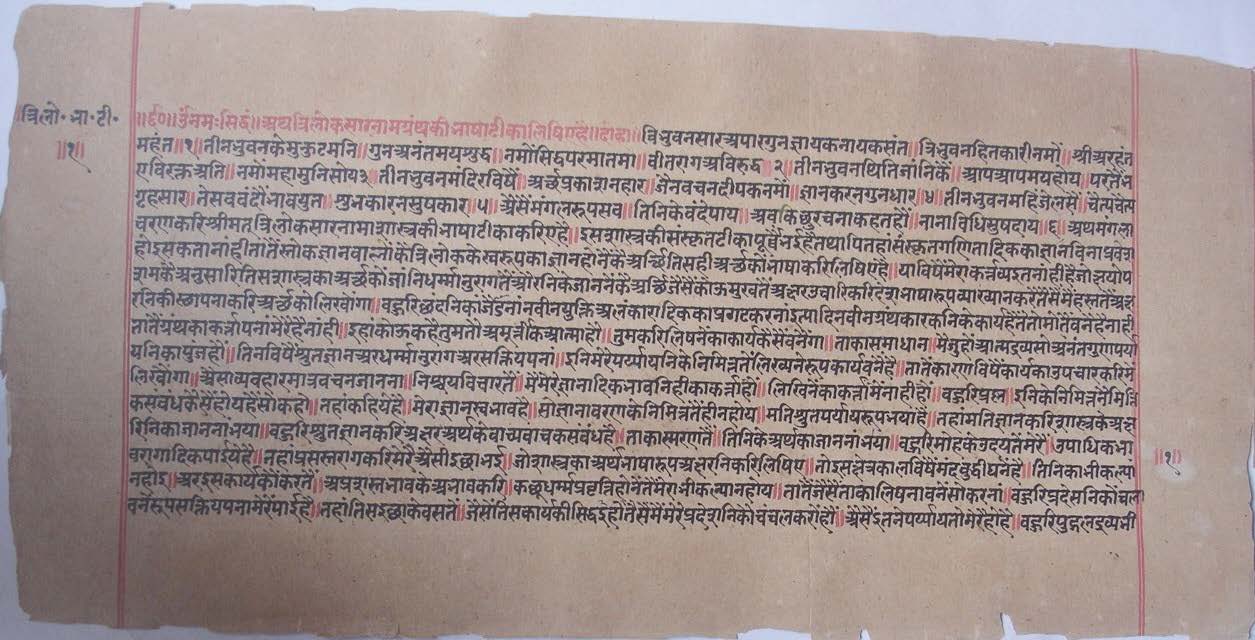 त्रिलो॰ भा॰ टी॰
॥१॥
॥र्द०॥ उंनमःसिद्धं॥ अथत्रिलोकसारनामग्रंथकीभाषाटीकालिषिएहै॥दोहा॥ त्रिभुवनसारअपारगुनज्ञायकनायकसंत॥ त्रिभुवनहितकारीनमों॥ श्रीअरहंत
महंत॥१॥ तीनभुवनकेमुकुटमनि॥ गुनअनंतमयशुद्ध॥ नमोंसिद्धपरमातमा॥ वीतरागअविरुद्ध २॥ तीनभुवनथितिजानिकें॥ आपआपमयहोय॥ परतेंभ
एविरक्तअति॥ नमोंमहामुनिसोय३॥ तीनभुवनमंदिरविषें॥ अर्थप्रकाशनहार॥ जैनवचनदीपकनमों॥ ज्ञानकरनगुनधार॥४॥ तीनभुवनमहिजेलसें॥ चैत्यचैत्य
गृहसार॥ तेसबवंदोंभावयुत॥ शुभकारनसुषकार॥५॥ अैसेंमंगलरूपसव॥ तिनिकेवंदेपाय॥ अवकिछुरचनाकहतहों॥ नानाविधिसुषदाय॥६॥ अथमंगला
चरणकरिश्रीमतत्रिलोकसारनामाशास्त्रकीभाषाटीकाकरिएहै॥ इसशास्त्रकीसंस्कृतटीकापूर्वैभईहैतथापितहांसंस्कृतगणितादिककाज्ञानविनाप्रवेश
होइसकतानांही॥तातेंस्तोकज्ञानवालोंकेंत्रिलोककेस्वरूपकाज्ञानहोनेंकेअर्थितिसहीअर्थकोंभाषाकरिलिषिएहै॥ याविषेंमेराकर्त्तव्यइतनांहीहैजोक्षयोप
शमकेंअनुसारितिसशास्त्रकाअर्थकोंजांनिधर्म्मानुरागतेंऔरनिकेजाननेंकेअर्थिजैसेंकोऊमुखतेंअक्षरउचारिकरिदेशभाषारूपव्याख्यानकरेंतैसेंमेंहस्ततेंअक्ष
रनिकीस्थापनाकरिअर्थकोंलिखोंगा॥ वहुरिछंदनिकाजोडनांनवीनयुक्तिअलंकारादिककाप्रगटकरनांइत्यादिनवीनग्रंथकारकनिकेकार्यहैतेतोमोतेंवनेंहैनाही
तातेंग्रंथकाकर्त्तापनामेरेंहैनांही॥ इहांकोऊकहैतुमतोअमूर्त्तीकआत्माहो॥ तुमकरिलिषनेकाकार्यकैसेंवनेंगा॥ ताकासमाधान॥ मेंजुहोंआत्मद्रव्यसोअनंतगुणपर्या
यनिकापुंजहों॥ तिनविषेंश्रुतज्ञानअरधर्म्मानुरागअरसक्रियपनो॥ इनिमेरेपर्य्यायनिकेनिमित्ततेंलिखनेरूपकार्यवनेंहै॥ तातेंकारणविषेंकार्यकाउपचारकरिमें
लिखोंगा॥ अैसाव्यवहारमात्रवचनजानना॥ निश्चयविचारतें॥ मेंमेरेज्ञानादिकभावनिहीकाकर्त्ताहों॥ लिखिनेंकाकर्त्तामेंनाहीहों॥ वहुरिप्रश्न॥ इनिकेनिमित्तनैमित्ति
कसवंधकैसेंहोयहैसोकहो॥ तहांकहियेहै॥ मेराज्ञानस्वभावहै॥ सोज्ञानावरणकेनिमित्ततेंहीनहोय॥ मतिश्रुतपर्यायरूपभयाहै॥ तहांमतिज्ञानकरिशास्त्रकेअक्ष
रनिकाजाननांभया॥ वहुरिश्रुतज्ञानकरिअक्षरअर्थकेवाच्यवाचकसंवंधहै॥ ताकास्मरणतें॥ तिनिकेअर्थकाजाननांभया॥ वहुरिमोहकेउदयतेंमेरें॥ उपाधिकभा
वरागादिकपाईयेहै॥ तहांप्रसस्तरागकरिमेरेंअैसीइछाभई॥ जोशास्त्रकाअर्थभाषारूपअक्षरनिकरिलिषिए॥ तोइसक्षेत्रकालविषेंमंदवुद्धीघनेंहै॥ तिनिकाभीकल्या
नहोइ॥ अरइसकार्यकोंकरतें॥ अप्रशस्तभावकेअभावकरि॥ कछूधर्म्मप्रवृत्तिहोनेंतेंमेराभीकल्यानहोय॥ तातेंजैसेंताकालिषनावनेंसोकरनां॥ वहुरिप्रदेसनिकाचला
वनेंरूपसक्रियपनामेरेंपाईहै॥ तहांतिसइछाकेवसतें॥ जैसेंतिसकार्यकीसिद्धहोतैसेंमेंमेरेप्रदेशनिकोचंचलकरोंहों॥ अैसेंइतनेपर्य्यायतोमेरेंहीहै॥ वहुरिपुद्गलद्रव्यभी
॥१॥